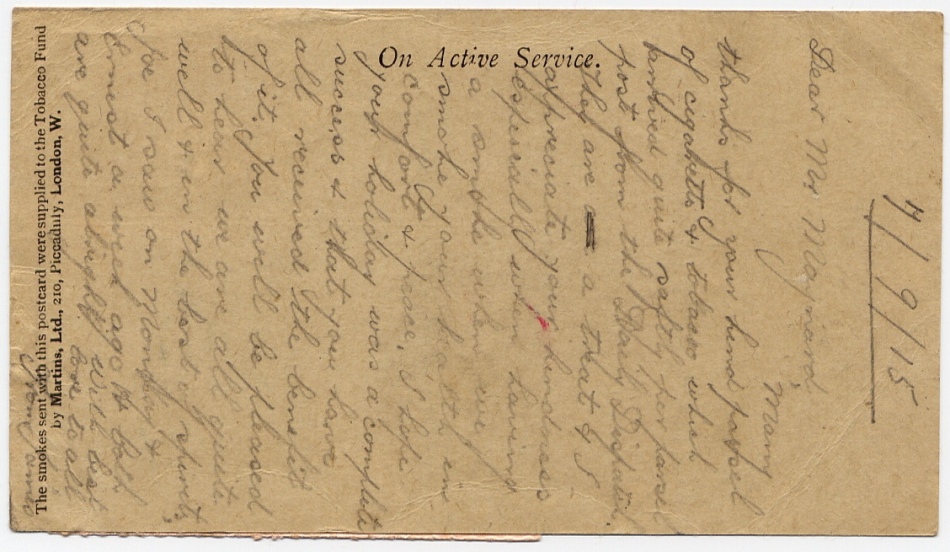 On Active Service.
The smokes sent with this postcard were supplied to the Tobacco Fund
by Martins, Ltd., 210, Piccadilly, London, W.
7/9/15
Dear Mr Maynard,
Many
thanks for your kind parcel
of cigaretts & tobacco which
arrived quite saftly per parcel
post from the Daily Dispatch.
They are a treat & I
appreciate your kindness
especially when having
a smoke when we
smoke your health in
comfort & peace. I hope
your holiday was a complete
success & that you have
all received the benefit
of it. You will be pleased
to hear we are all quite
well & in the best of spirits,
Joe I saw on Monday &
Ernest a week ago & both
are quite alright with best
love to all